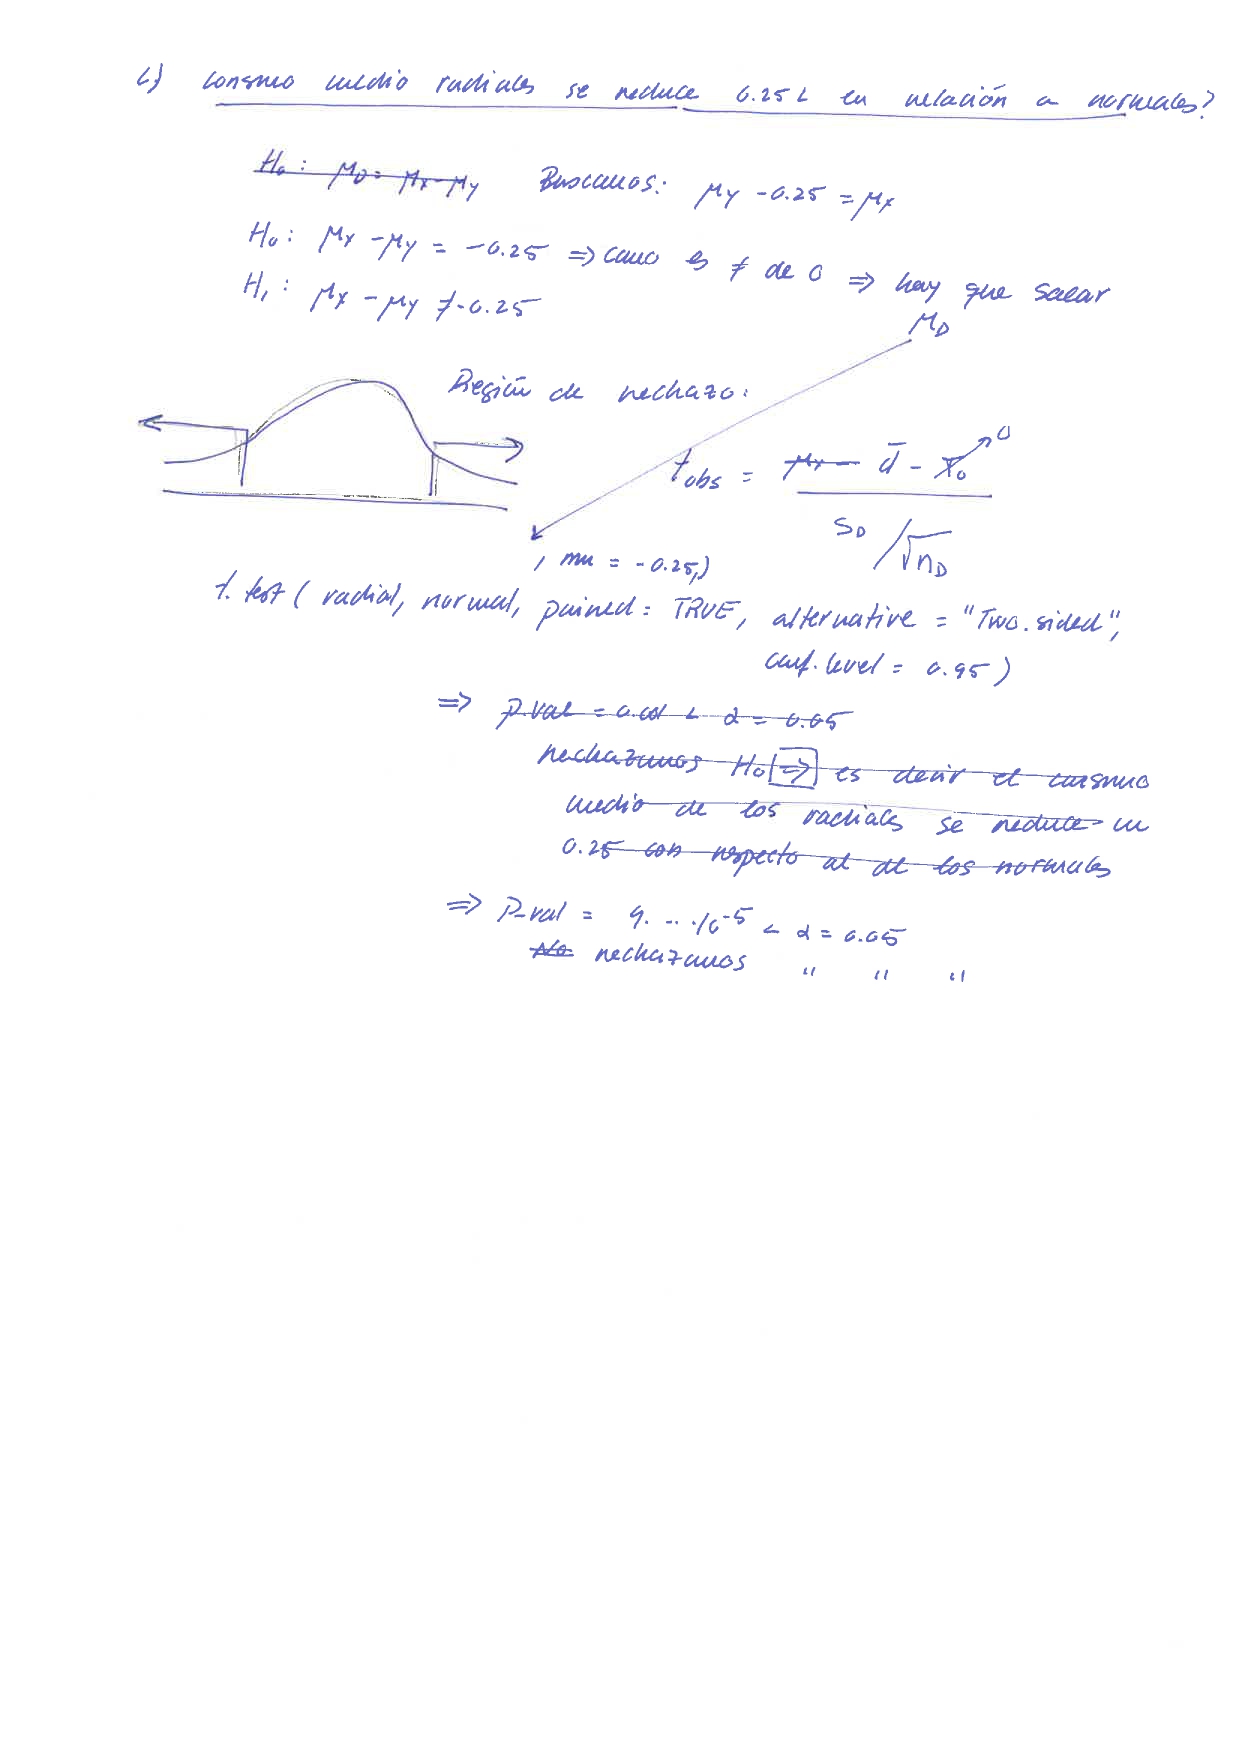 c) Consumo medio radiales se reduce 0.25 L en relación a normales?
H₀: μD = μx - μy Buscamos: μy - 0.25 = μx
H₀: μx - μy = -0.25 => como es ≠ de 0 => hay que sacar
μD
H₁: μx - μy ≠ -0.25
Región de rechazo:
tobs = μx - d̄ - x̄₀ 0
SD / √nD
, mu = -0.25,)
t.test ( radial, normal, paired = TRUE, alternative = "Two.sided",
conf.level = 0.95 )
=> p.val = 0.001 < α = 0.05
rechazamos H₀ => es decir el consumo
medio de los radiales se reduce en
0.25 con respecto al de los normales
=> P-val = 9. ... ·10⁻⁵ < α = 0.05
No rechazamos " " "